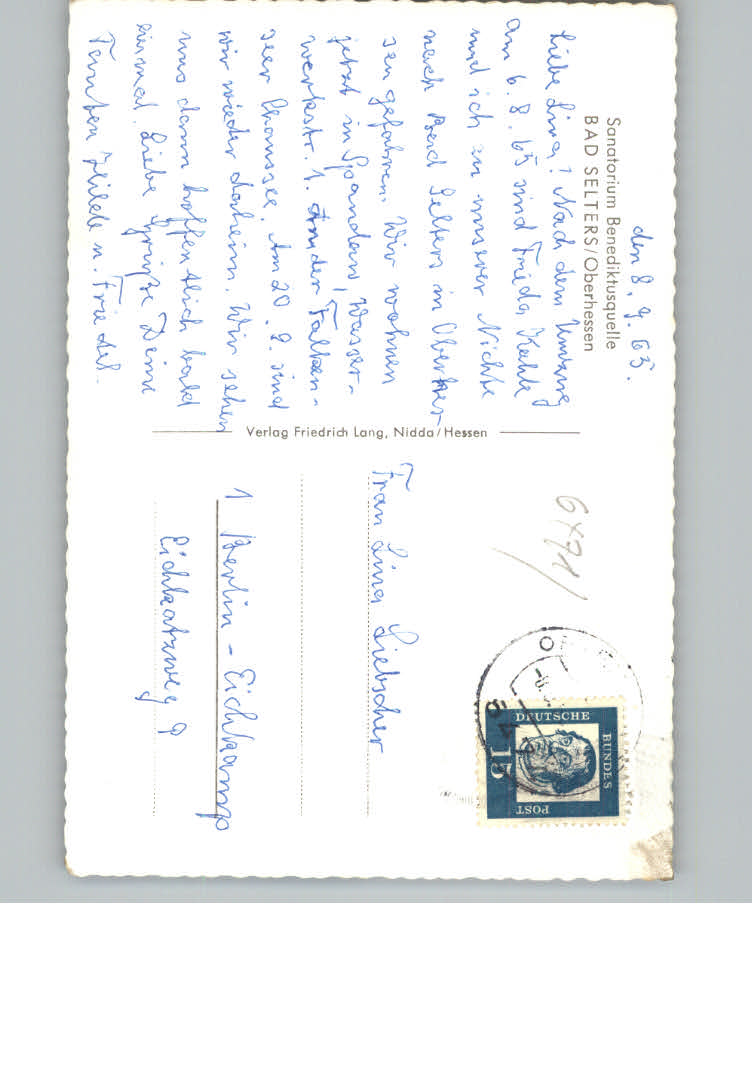 Sanatorium Benediktusquelle
BAD SELTERS/Oberhessen
den 8. 9. 65.
Liebe Lina! Nach dem Umzug
am 6. 8. 65 sind Frieda Kahle
und ich zu unserer Nichte
nach Bad Selters in Oberhes-
sen gefahren. Wir wohnen
jetzt in Spandau, Wasser-
werkstr. 1. An der Falken-
seer Chaussee. Am 20. 9. sind
wir wieder daheim. Wir sehen
uns dann hoffentlich bald
einmal. Liebe Grüße Deine
Tanten u. Friedel.
Verlag Friedrich Lang, Nidda/Hessen
6x71/
DEUTSCHE
BUNDES
POST
15
Frau Lina Liebscher
1 Berlin - Eichkamp
Eichkatzweg 9